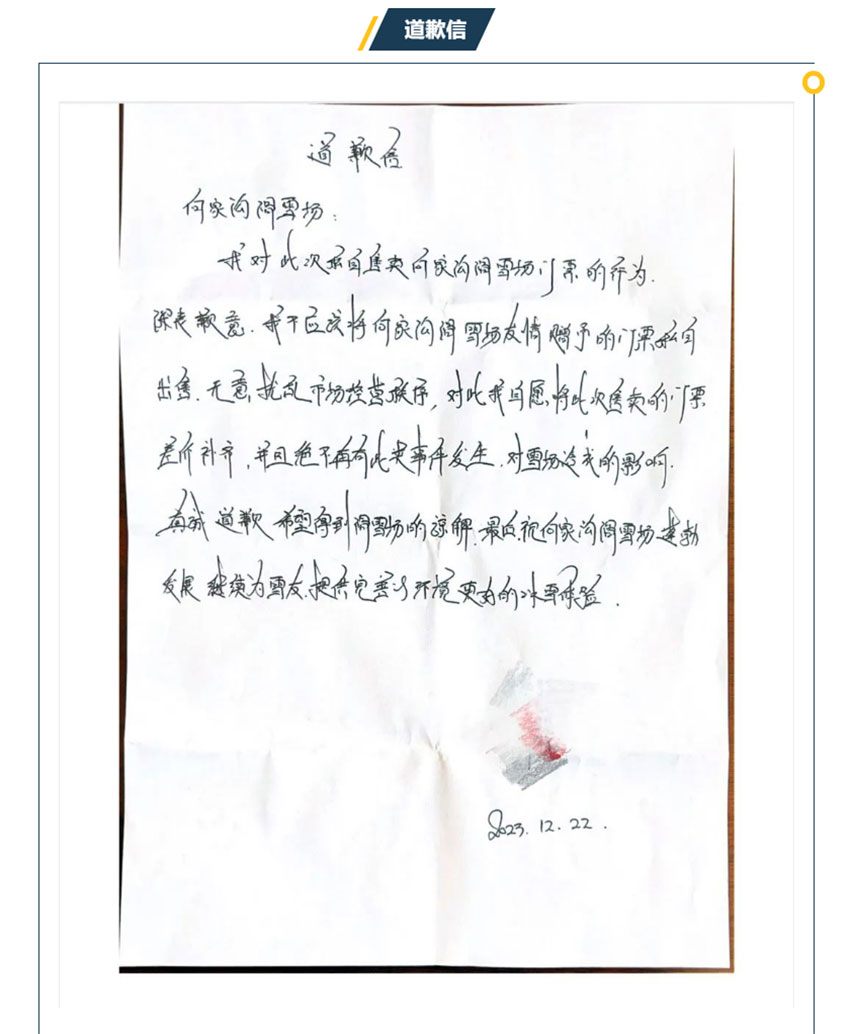 道歉信
道歉信
何家沟滑雪场：
我对此次私自售卖何家沟滑雪场门票的行为.
深表歉意.我不应该将何家沟滑雪场友情赠予的门票私自
出售.无意扰乱市场经营秩序，对此我自愿将此次售卖的门票
差价补齐，并且绝不再有此类事件发生.对雪场造成的影响.
真诚道歉 希望得到滑雪场的谅解.最后.祝何家沟滑雪场蓬勃
发展 继续为雪友.提供完善 环境更好的冰雪体验.
2023.12.22.